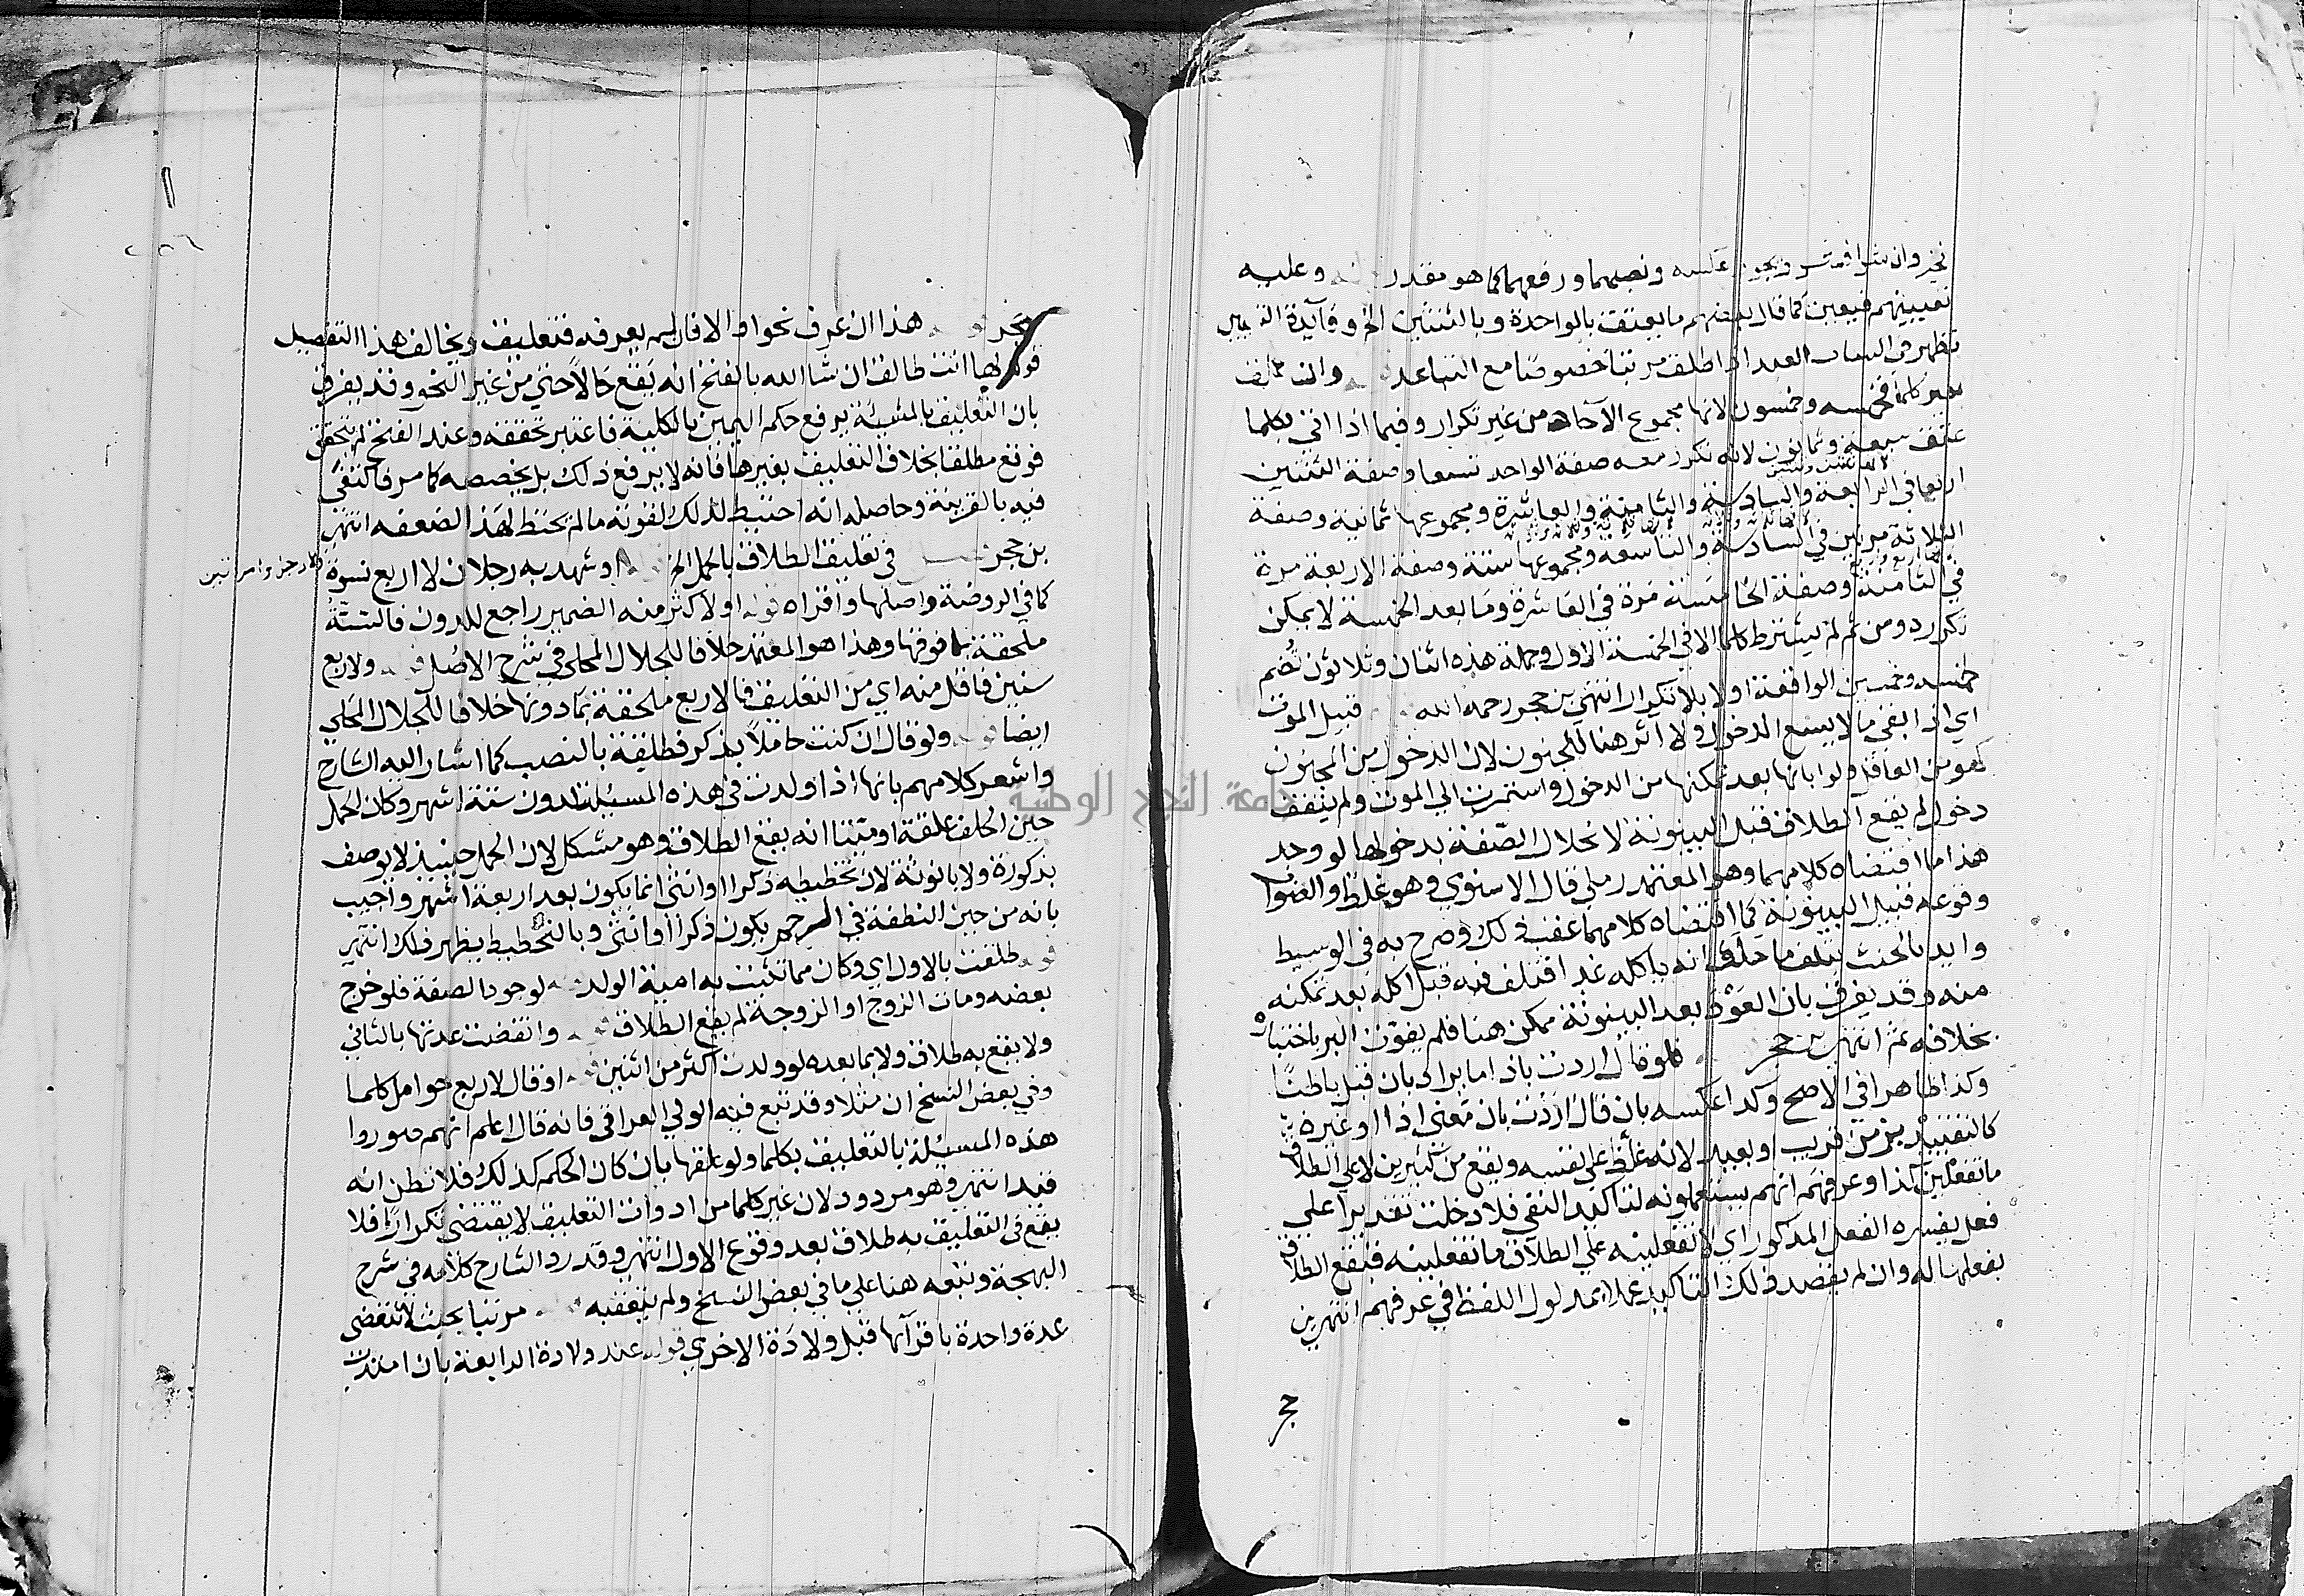 نخير وان شرا فشر ويجوز عكسه ونصبهما ورفعهما كما هو مقدر وعليه
تعيينهم فيعين كما قال بعضهم ما يعتق بالواحدة وبالثنتين الخ وفائدة التعيين
تظهر في اكساب العبيد اذا طلق مرتبا خصوصا مع التباعد والتعليق
بغير كلما فخمسه وخمسون لانها مجموع الآحاد من غير تكرار وفيما اذا اتي بكلما
عتق سبعه وثمانون لانه تكرر معه صفة الواحد تسعا وصفة الثنتين
اربعا في الرابعة والسادسة والثامنة والعاشرة ومجموعها ثمانية وصفة
الثلاثة مرتين في السادسة والتاسعة ومجموعها ستة وصفة الاربعة مرة
في الثامنة وصفة الخامسة مرة في العاشرة وما بعد الخمسة لا يمكن
تكرره ومن ثم لم يشترط كلما الا في الخمسة الاول وجملة هذه اثنان وثلاثون تضم
لخمسه وخمسين الواقعة اولا بلا تكرار انتهي بن حجر رحمه الله قبيل الموت
اي اذا بقي ما لا يسع الدخول ولا اثر هنا للجنون لان الدخول من المجنون
كهو من العاقل ولو ابانها بعد تمكنها من الدخول واستمرت الي الموت ولم يتفق
دخول لم يقع الطلاق قبل البينونة لانحلال الصفة بدخولها لو وجد
هذا ما اقتضاه كلامهما وهو المعتمد رملي قال الاسنوي وهو غلط والصواب
وقوعه قبيل البينونة كما اقتضاه كلامهما عقب ذلك وصرح به في الوسيط
وايد بالحنث بتلف ما حلف انه ياكله غدا فتلف فيه قبل اكله بعد تمكنه
منه وقد يفرق بان العود بعد البينونة ممكن هنا فلم يفوت البر باختياره
بخلافه ثم انتهى بن حجر فلو قال اردت باذا ما يراد بان قبل باطنا
وكذا ظاهرا في الاصح وكذا عكسه بان قال اردت بان معنى اذا او غيره
كالتقييد بزمن قريب او بعيد لانه غلظ علي نفسه ويقع من كثيرين لاعلي الطلاق
ما تفعلين كذا وعرفهم انهم يستعملونه لتاكيد النفي فلا دخلت تقديرا علي
فعل يفسره الفعل المذكور اي لا تفعلينه علي الطلاق ما تفعلينه فيقع الطلاق
بفعلها له وان لم يقصد ذلك التاكيد عملا بمدلول اللفظ في عرفهم انتهي بن
حجر
حجر هذا ان عرف نحوا والا فان لم يعرفه فتعليق ويخالف هذا التفصيل
قوله لها انت طالق ان شاالله بالفتح انه يقع حالا حتي من غير النحو وقد يفرق
بان التعليق بالمشيئة يرفع حكم اليمين بالكلية فاعتبر تحققه وعند الفتح لم يتحقق
فوقع مطلقا بخلاف التعليق بغيرها فانه لا يرفع ذلك بل يخصصه كما مر فاكتفي
فيه بالقرينة وحاصله انه احتيط لذلك لقوته ما لم يحتط لهذا لضعفه انتهي
بن حجر في تعليق الطلاق بالحمل الخ او شهد به رجلان لا اربع نسوة
ولا رجل وامراتين
كما في الروضة واصلها واقراه قوله او لاكثر منه الضمير راجع للدون فالستة
ملحقة بما فوقها وهذا هو المعتمد خلافا للجلال المحلي في شرح الاصل ولاربع
سنين فاقل منه اي من التعليق فالاربع ملحقة بما دونها خلافا للجلال المحلي
ايضا ولو قال ان كنت حاملا بذكر فطليقة بالنصب كما اشار اليه الشارح
واشعر كلامهم بانها اذا ولدت في هذه المسيلة لدون ستة اشهر وكان الحمل
حين الحلف علقة او متنا انه يقع الطلاق وهو مشكل لان الحمل حينيذ لا يوصف
بذكورة ولا بانوثة لان تخطيطه ذكرا او انثى انما يكون بعد اربعة اشهر واجيب
بانه من حين النطفة في الرحم يكون ذكرا او انثى وبالتخطيط يظهر ذلك انتهى
طلقت بالاول اي وكان مما تثبت به امية الولد لوجود الصفة فلو خرج
بعضه ومات الزوج او الزوجة لم يقع الطلاق وانقضت عدتها بالثاني
ولا يقع به طلاق ولا بما بعده لو ولدت اكثر من اثنين او قال لاربع حوامل كلما
وفي بعض النسخ ان مثلا وقد تبع فيه الولي العراقي فانه قال اعلم انهم صوروا
هذه المسيلة بالتعليق بكلما ولو علقها بان كان الحكم كذلك فلا تظن انه
قيد انتهى وهو مردود لان غير كلما من ادوات التعليق لا يقتضى تكرارا فلا
يقع في التعليق به طلاق بعد وقوع الاول انتهى وقد رد الشارح كلامه في شرح
البهجة وتبعه هنا علي ما في بعض النسخ ولم يتعقبه مرتبا بحيث لا تنقضى
عدة واحدة باقرآئها قبل ولادة الاخري قوله عند ولادة الرابعة بان امتدت
جامعة النجاح الوطنية